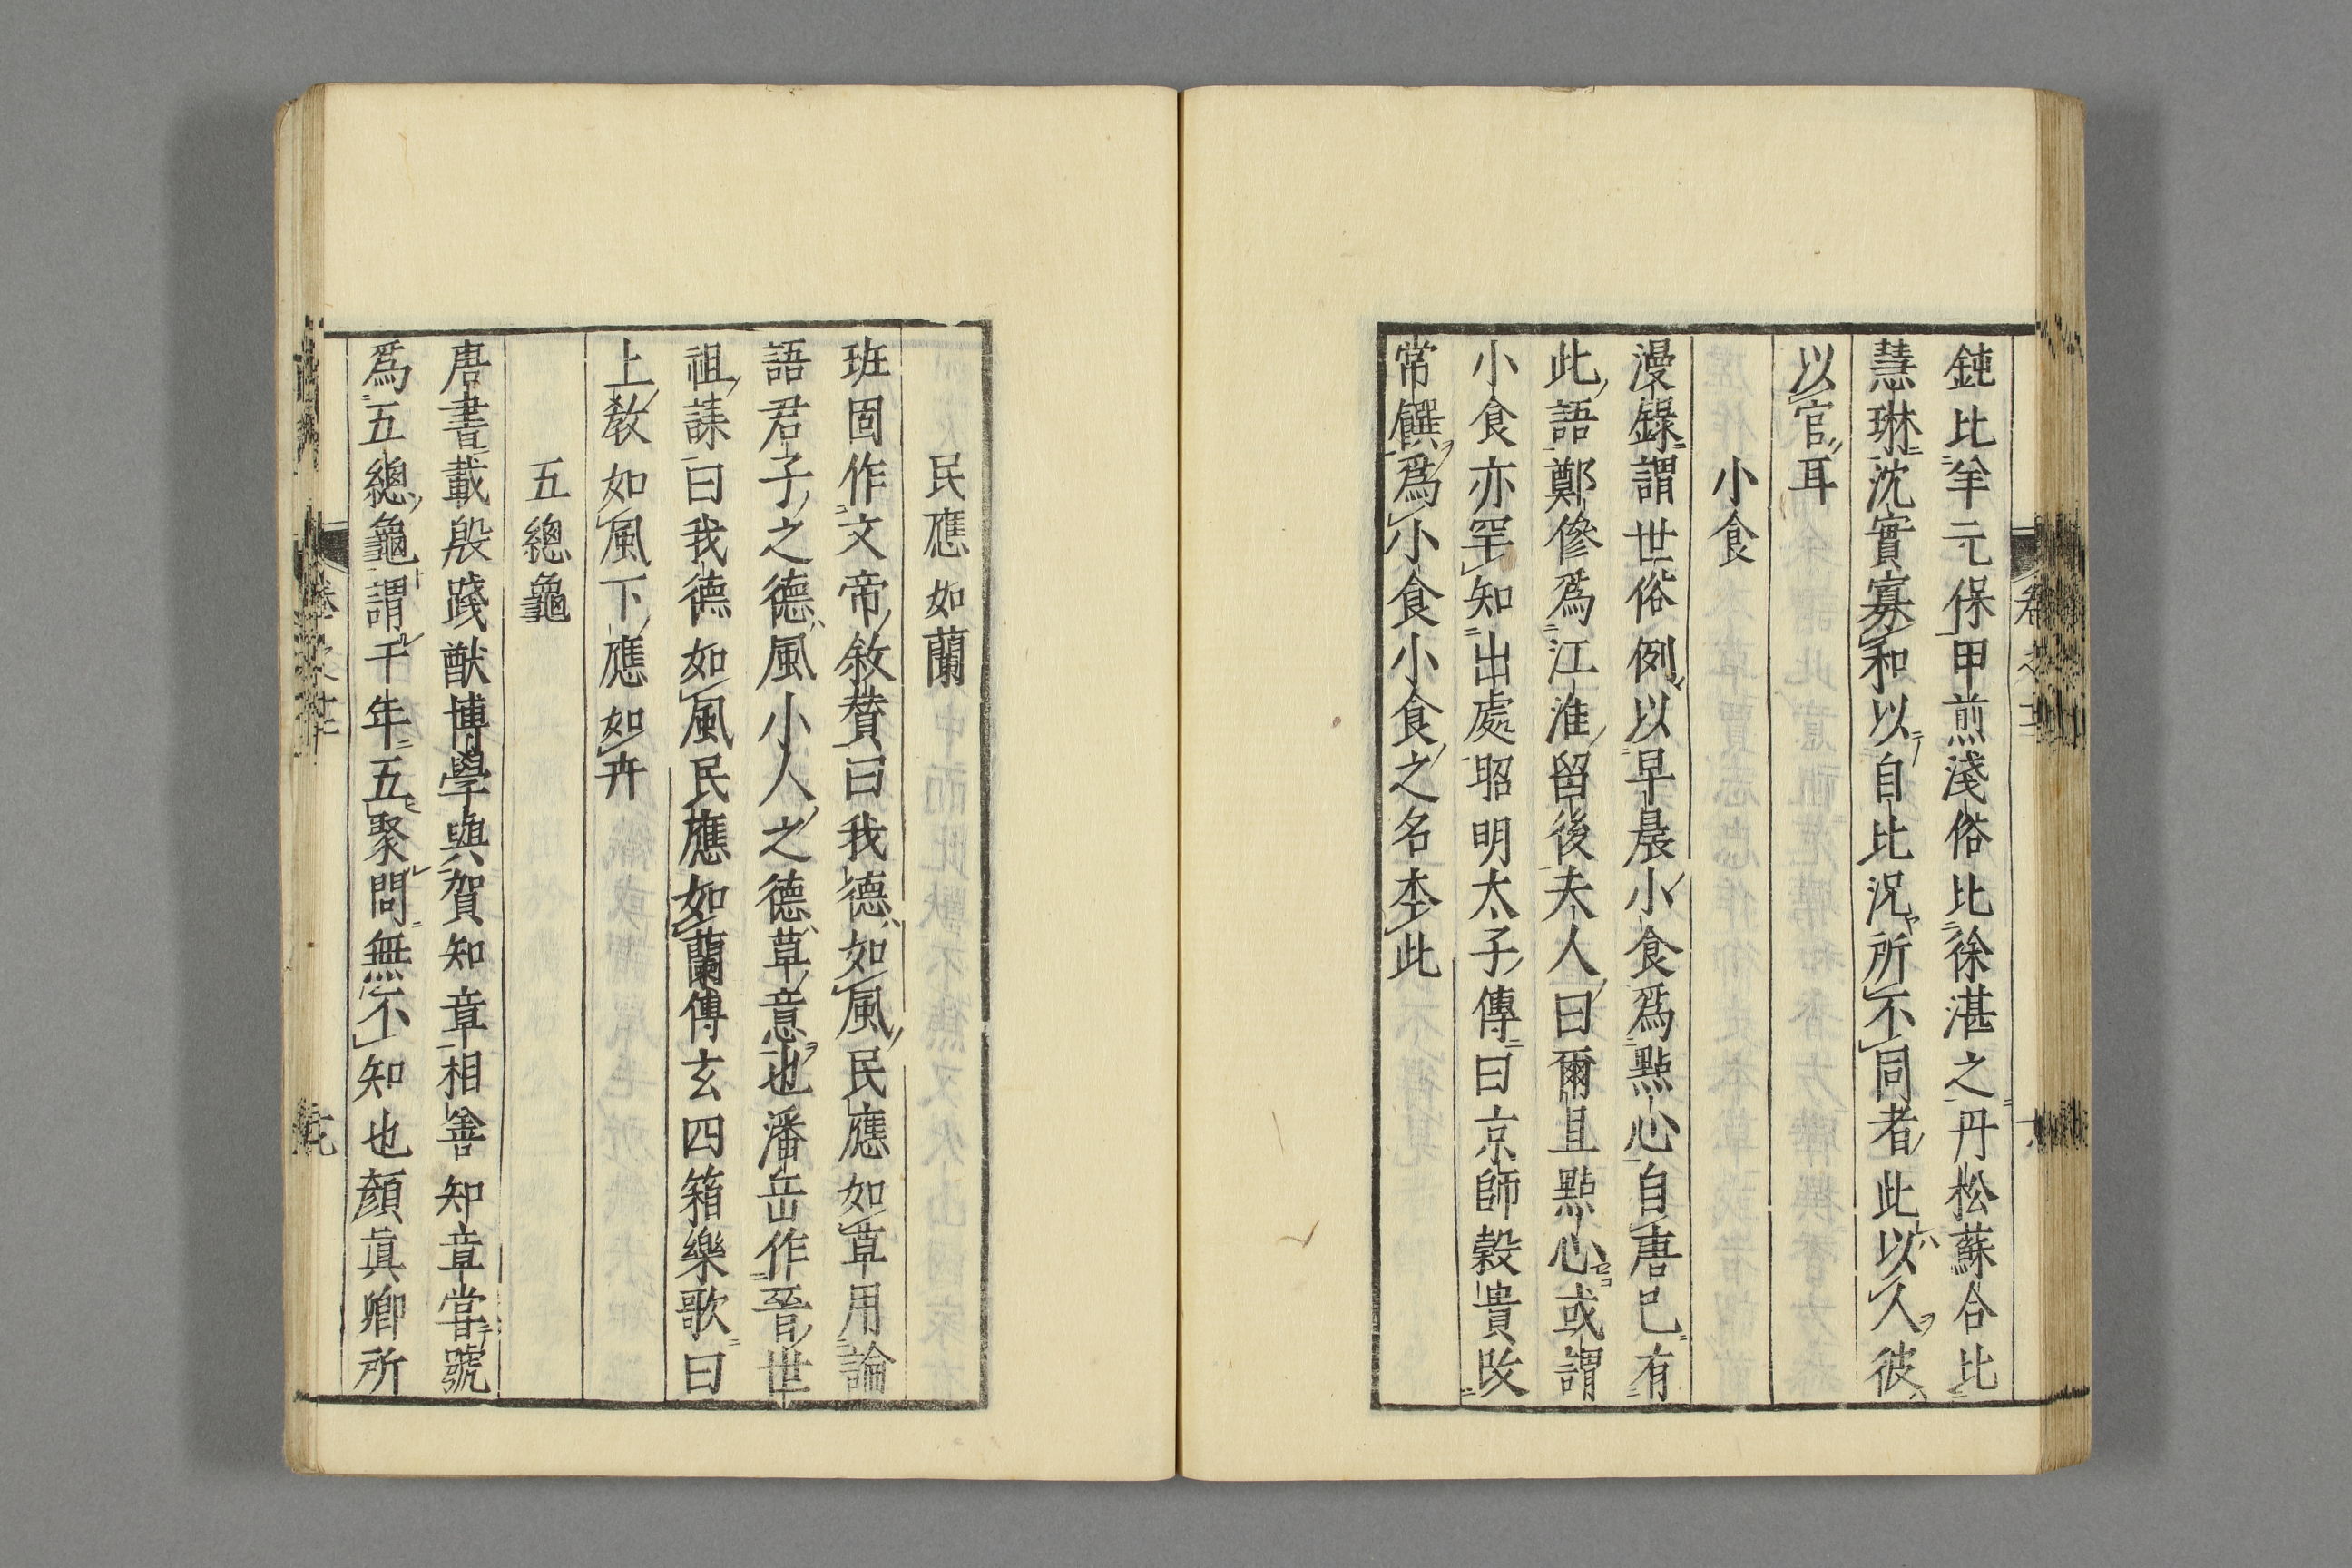 鈍比羊元保甲煎淺俗比徐湛之丹松蘇合比
慧琳沈實寡和以自比况所不同者此以人彼
以官耳
小食
漫錄謂世俗例以早晨小食爲點心自唐已有
此語鄭傪爲江淮留後夫人曰爾且點心或謂
小食亦罕知出處昭明太子傳曰京師穀貴改
常饌爲小食小食之名本此
民應如蘭
班固作文帝敘贊曰我德如風民應如草用論
語君子之德風小人之德草意也潘岳作晉世
祖誄曰我德如風民應如蘭傅玄四箱樂歌曰
上教如風下應如卉
五總龜
唐書載殷踐猷博學與賀知章相善知章嘗號
爲五總龜謂千年五聚問無不知也顏眞卿所